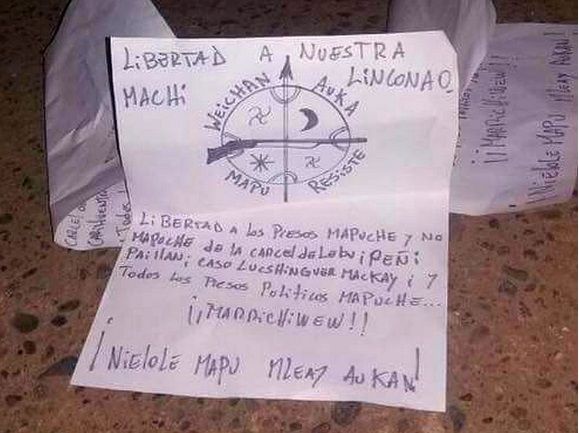 LIBERTAD A NUESTRA
MACHI LINCONAO.
WEICHAN AUKA
MAPU RESISTE
LIBERTAD A los Presos MAPUCHE y NO
MAPUCHE de la CARCEL de Lebu ¡PEÑi
PAillAN; CASO LUCSHINGUER MACKAY ¡ y
Todos los Presos Politicos MAPUCHE...
¡¡MARRiCHiWEW!!
¡Nielole MAPU Mleay AUKAN!
¡¡MARRiCHiWEW!!
¡Nielole MAPU Mleay AUKAN!